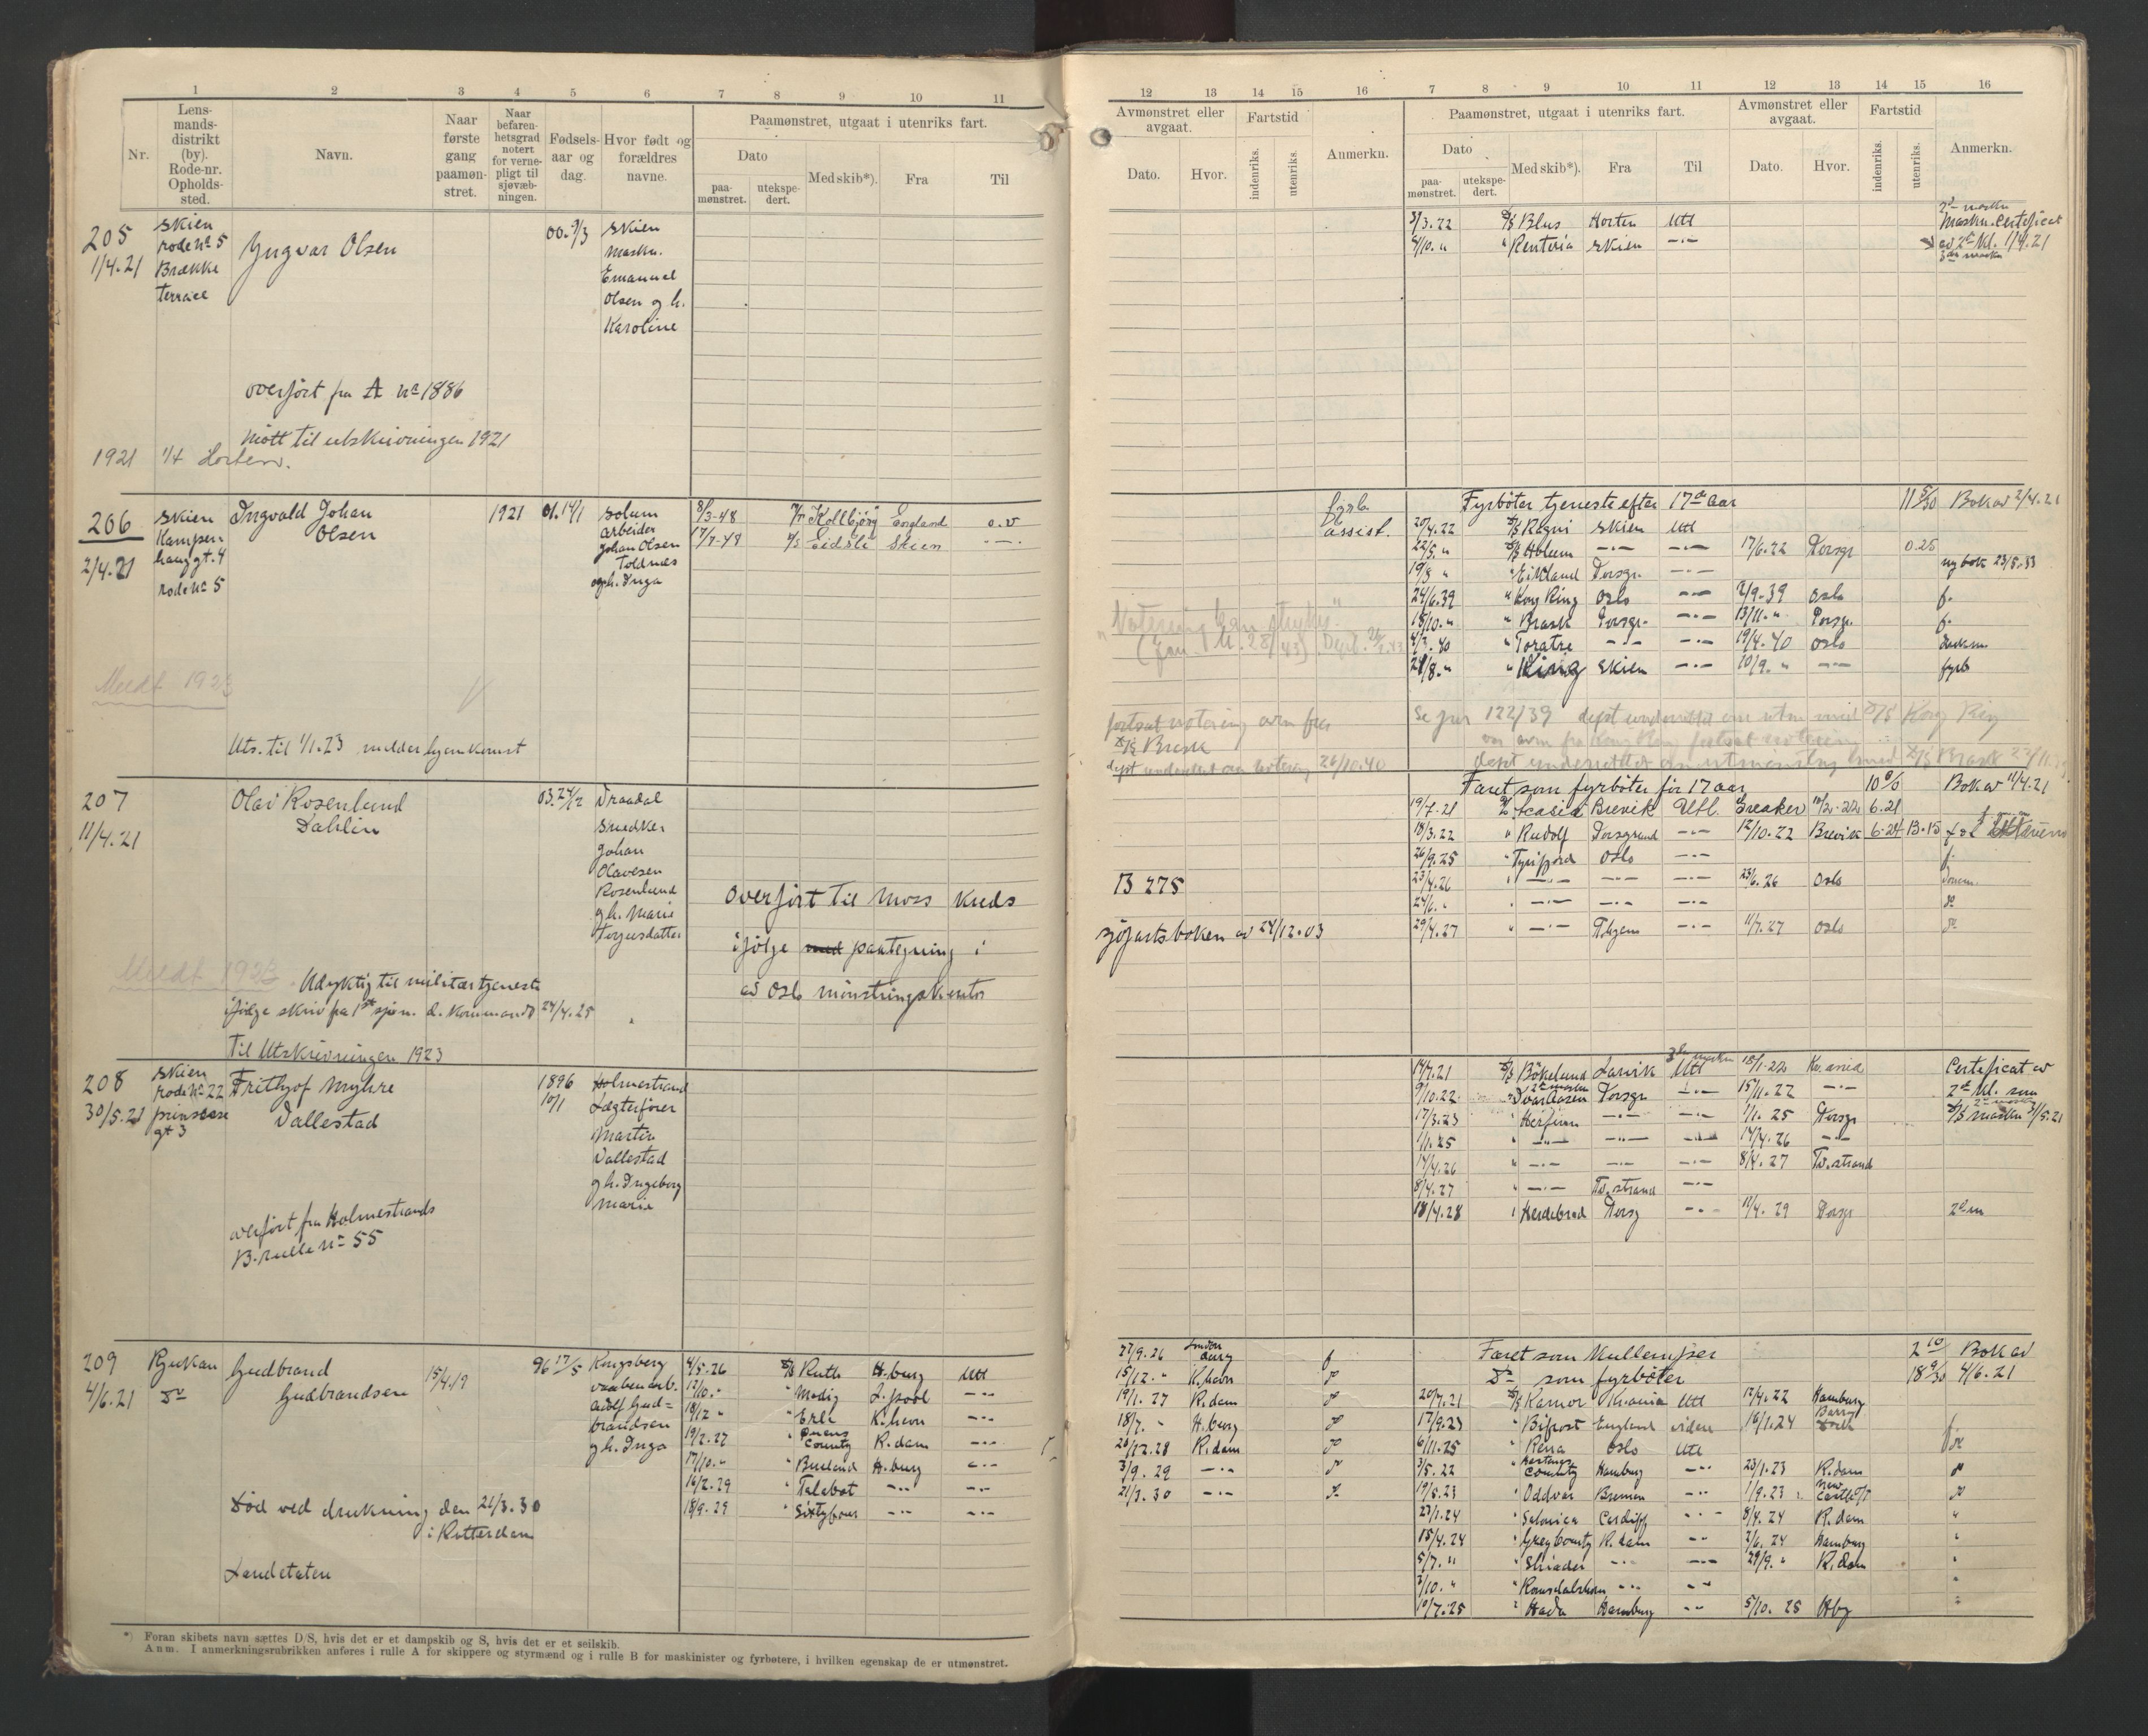 1 2 3 4 5 6 7 8 9 10 11
Nr.
Lens-
mands-
distrikt
(by).
Rode-nr.
Opholds-
sted.
Navn.
Naar
første
gang
paamøn-
stret.
Naar
befaren-
hetsgrad
notert
for verne-
pligt til
sjøvæb-
ningen.
Fødsels-
aar og
dag.
Hvor født og
forældres
navne.
Paamønstret, utgaat i utenriks fart.
Dato
paa-
mønstret.
utekspe-
dert.
Med skib*).
Fra
Til
205
1/4.21
Skien
rode No 5
Brække
terrace
Yngvar Olsen
00. 9/3
Skien
Maskn.
Emanuel
Olsen og h.
Karoline
overført fra A No 1886
Mött til utskrivningen 1921
1921 1/4 Horten.
206
2/4.21
Skien
Kampen
haug gt. 4
rode No 5
Ingvald Johan
Olsen
1921
01. 14/1
Solum
arbeider
Johan Olsen
Toldnes
og h. Inga
8/3-48 M/T Kollbjørg England o.v
17/7-48 D/S Eidsli Skien -·-
Meldt 1923
Uts. til 1/1.23 melder hjemkomst
207
11/4.21
Olav Rosenlund
Dahlin
03. 24/12
Draadal
Smedker
Johan
Olavesen
Rosenlund
g h. Marie
Torjusdatter
overført til Moss Kreds
ifølge med paategning i
av Oslo mönstringskontor
Meldt 1923
Udyktig til militærtjeneste
ifølge skriv fra 1ste sjøm. d. kommando 24/4.25
Til Utskrivningen 1923
208
30/5.21
Skien
rode No 22
prinsesse
gt 3
Frithjof Myhre
Vallestad
1896
10/1
Holmestrand
Lægterfører
Martin
Vallestad
g h. Ingeborg
Marie
overført fra Holmestrands
B. rulle No 55
209
4/6.21
Rjukan
Do
Gudbrand
Gudbrandsen
15/4.19
96 17/5
Kongsberg
vaabenarb.
Adolf Gud-
brandsen
g h. Inga
4/5.26 D/S Ruth H.burg Utl
12/10." " Modig L.pool -·-
18/12 " " Erle K.havn -·-
19/2.27 " Queens County R.dam -·-
17/10." " Buland H.burg -·-
16/2.29 " Talabot -·- -·-
18/9.29 " Sixtyfour -·- -·-
Død ved drukning den 21/3.30
i Rotterdam
Landetaten
*) Foran skibets navn sættes D/S, hvis det er et dampskib og S, hvis det er et seilskib.
Anm. I anmerkningsrubrikken anføres i rulle A for skippere og styrmænd og i rulle B for maskinister og fyrbøtere, i hvilken egenskap de er utmønstret.
12 13 14 15 16 7 8 9 10 11 12 13 14 15 16
Avmønstret eller
avgaat.
Dato.
Hvor.
Fartstid
indenriks.
utenriks.
Anmerkn.
Paamønstret, utgaat i utenriks fart.
Dato
paa-
mønstret.
utekspe-
dert.
Med skib*).
Fra
Til
Avmønstret eller
avgaat.
Dato.
Hvor.
Fartstid
indenriks.
utenriks.
Anmerkn.
3/3.22 D/S Blus Horten Utl
4/10. " " Renteria Skien -·-
2den maskn
Maskn. Certificat
av 2den Kl. 1/4.21
3die maskn
fyrb.
assist.
Fyrböter tjeneste efter 17de aar 11 5/30 Bok av 2/4.21
20/4.22 D/S Ragni Skien Utl
22/5. " D/S Holum -·- -·- 17/6.22 Porsgr 0.25
19/8 " " Eikland Porsgr. -·- ny bok 23/5.33
24/6.39 " Kong Ring Oslo -·- 2/9-39 Oslo f.
18/10. " " Brask Porsgr. -·- 13/11. " Porsgr. f.
4/3.40 " Toratre -·- -·- 19/4.40 Oslo
24/8. " " King Skien -·- 10/9. " -·- fyrb
"Notering kan stryks"
fortsat notering avm fra
D/S Brask
dept underrettet om notering 26/10.40
Se jnr 122/39 dept underrettet om utm med D/S Kong Ring
var avm fra Kong Ring fortsat notering
dept underrettet om utmönstring med D/S Brask
Faret som fyrböter för 17 aar 10 0/0 Bok av 11/4.21
19/7-21 Brevik Utl. Greaker 6.21
18/3.22 " Rudolf Porsgrund -·- 12/10.22 Brevik 6-24 13.15
26/9.25 " Tyrifjord Oslo -·- f.
23/4.26 " -·- -·- -·- 23/6.26 Oslo
24/6. " " -·- -·- -·- do
29/4.27 " -·- -·- 11/7.27 Oslo do
B 275
sjöfartsboken av 24/12.03
14/7.21 D/S Bökelund Larvik Utl 18/1.22 Kr.ania
9/10.22 " Ivar Aasen Porsgr -·- 15/11.22 -·-
17/3.23 " Herfinn -·- -·- 1/1.25 Porsgr
1/1.25 " -·- -·- -·- 14/4.26 -·-
14/4.26 " -·- -·- -·- 8/4.27 Tv.strand
8/4.27 " -·- Tv.strand -·-
18/4.28 " Heidebrad Porsg -·- 11/4.29 Porsgr 2den m
Certificat av
2den Kl. som
2den maskn
D/S maskn 31/5.21
27/9.26 London derry f
15/12. " K.havn do
19/1.27 R.dam do
18/7. " H.burg do
26/12.28 R.dam do
3/9.29 -·- do
21/3.30 -·- do
Faret som Kullemper 2 10 Bok av
Do som fyrböter 18 9/30 4/6.21
20/7.21 D/S Ramor Kr.ania Utl 12/4.22 Hamburg
17/9.23 " Bifrost England viden 16/1.24 Barry f
6/11.25 " Rena Oslo Utl do
3/5.22 " County Hamburg -·- 23/1.23 R.dam do
19/5.23 " Oddvar Bremen -·- 1/9.23 New Castle do
23/1.24 " Salonica Cardiff -·- 8/4.24 R.dam "
15/4.24 " Grey County R.dam -·- 2/6.24 Hamburg "
5/7. " " -·- -·- 29/9. " R.dam "
2/10. " " Romsdalshorn -·- -·- "
10/7.25 " Hada Hamburg -·- 5/10.25 Hbg "